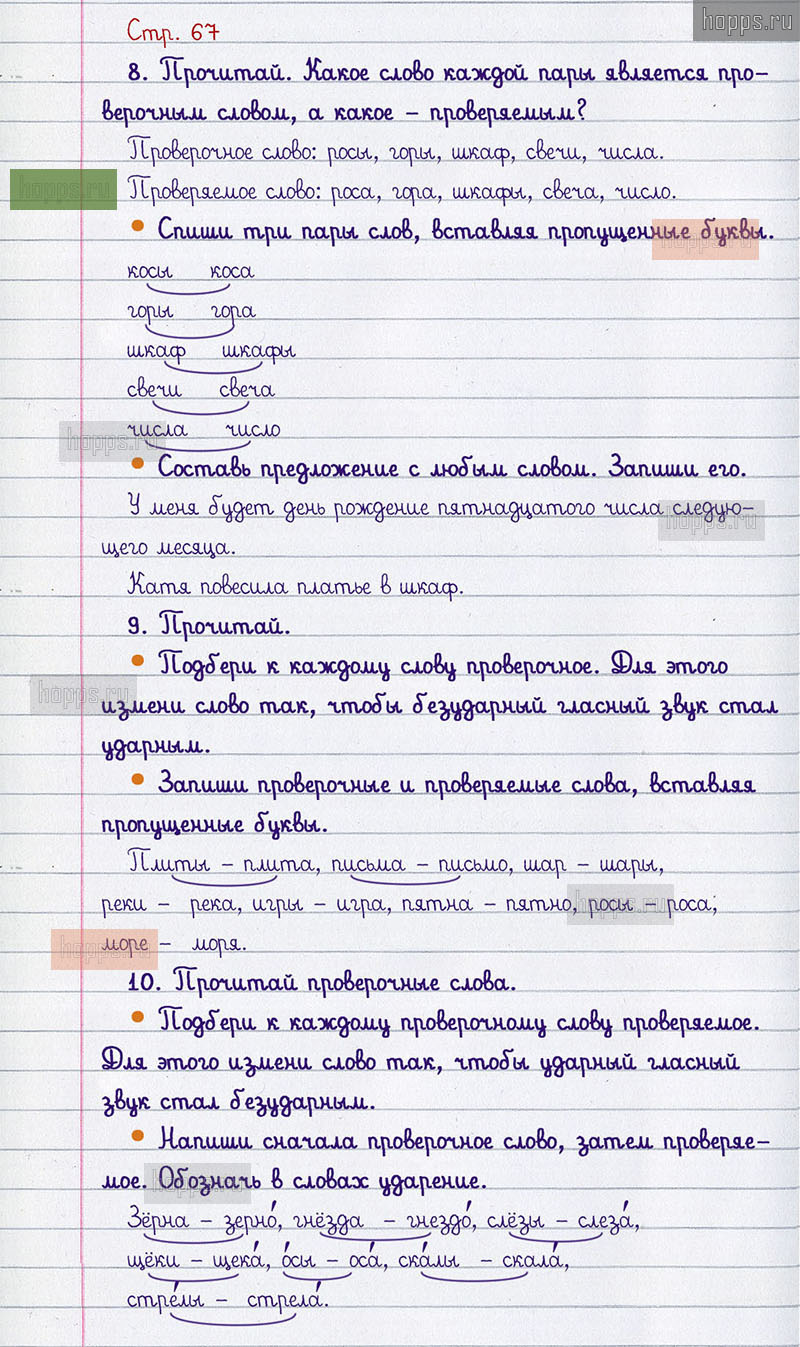 hopps.ru
Стр. 67
8. Прочитай. Какое слово каждой пары является про-
верочным словом, а какое – проверяемым?
Проверочное слово: росы, горы, шкаф, свечи, числа.
hopps.ru
Проверяемое слово: роса, гора, шкафы, свеча, число.
• Спиши три пары слов, вставляя пропущенные буквы.
hopps.ru
косы коса
горы гора
шкаф шкафы
свечи свеча
числа число
hopps.ru
• Составь предложение с любым словом. Запиши его.
У меня будет день рождение пятнадцатого числа следую-
hopps.ru
щего месяца.
Катя повесила платье в шкаф.
9. Прочитай.
• Подбери к каждому слову проверочное. Для этого
hopps.ru
измени слово так, чтобы безударный гласный звук стал
ударным.
• Запиши проверочные и проверяемые слова, вставляя
пропущенные буквы.
Плиты – плита, письма – письмо, шар – шары,
реки – река, игры – игра, пятна – пятно, росы – роса;
hopps.ru
море – моря.
hopps.ru
10. Прочитай проверочные слова.
• Подбери к каждому проверочному слову проверяемое.
Для этого измени слово так, чтобы ударный гласный
звук стал безударным.
• Напиши сначала проверочное слово, затем проверяе-
мое. Обозначь в словах ударение.
hopps.ru
Зёрна – зерно́, гнёзда – гнездо́, слёзы – слеза́,
щёки – щека́, о́сы – оса́, ска́лы – скала́,
стре́лы – стрела́.